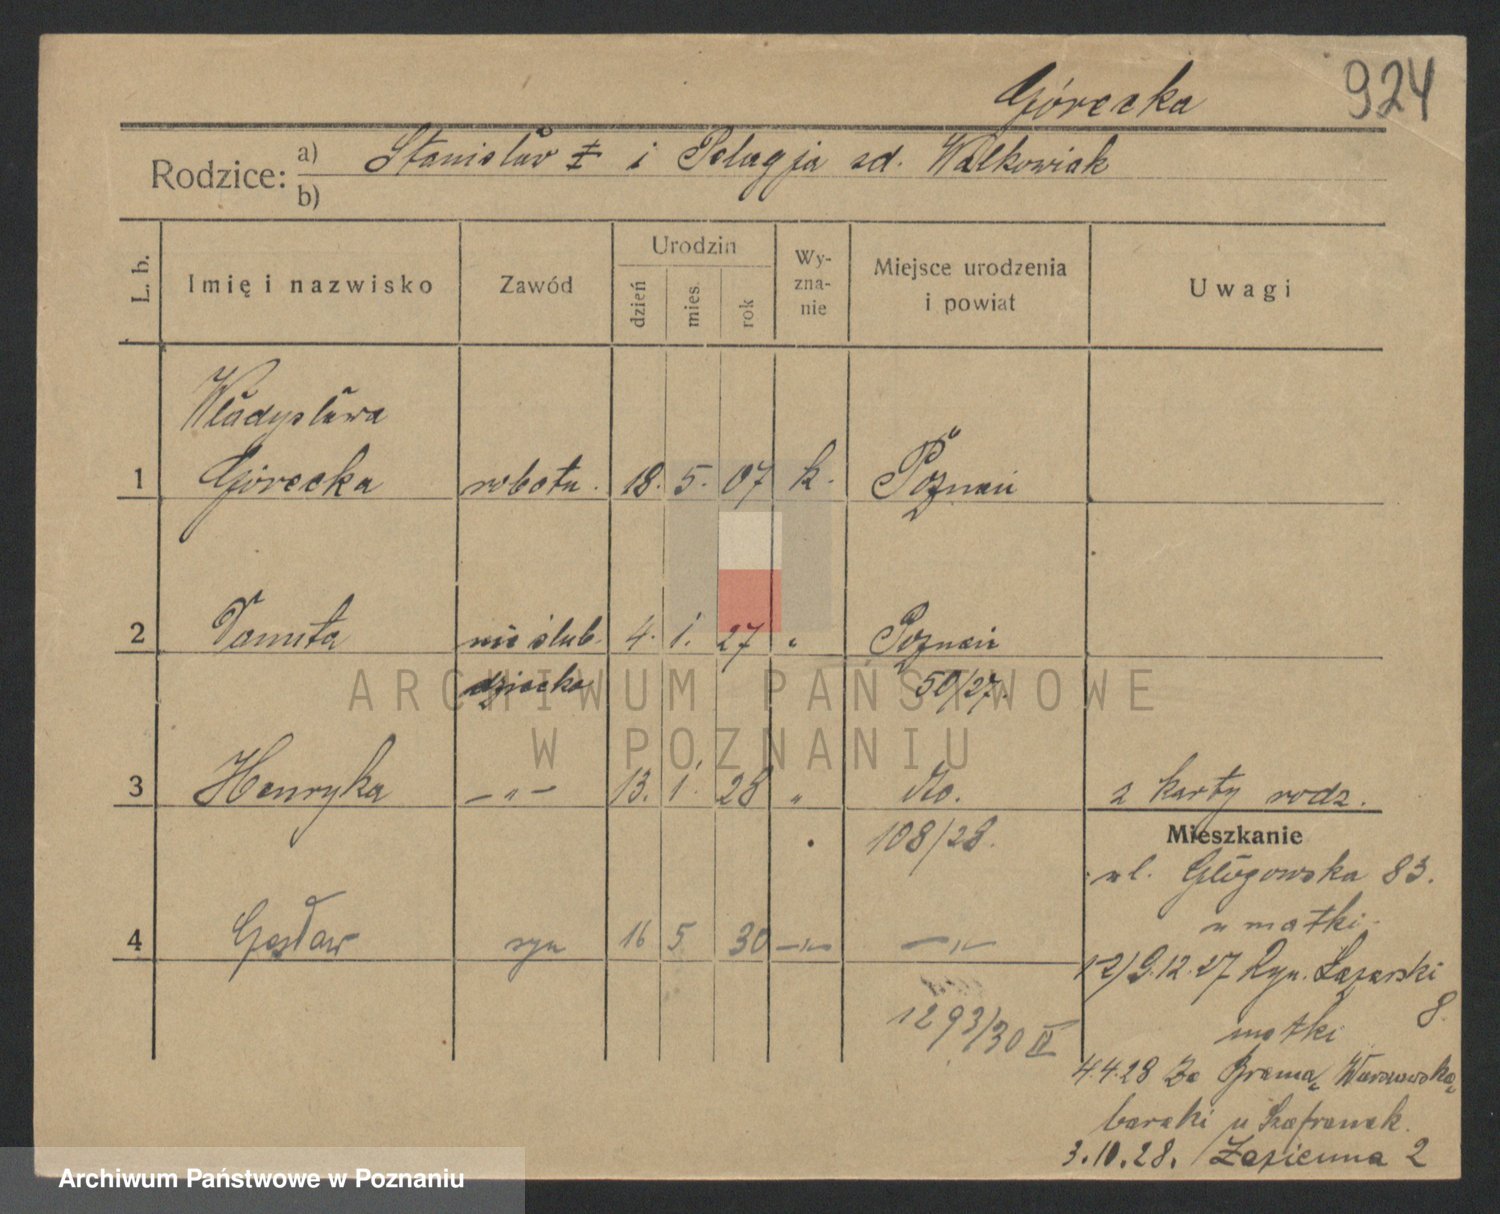 Górecka
924
Rodzice: a) Stanisław ‡ i Pelagja zd. Walkowiak
b)
L. b. Imię i nazwisko Zawód Urodzin dzień mies. rok Wy-zna-nie Miejsce urodzenia i powiat Uwagi
Władysława
1 Górecka robotn. 18. 5. 07 k. Poznań
2 Danuta nieślub. 4. 1. 27 " Poznań
dziecko 50/27.
3 Henryka — " — 13. 1. 28 " dto. 2 karty rodz.
108/28.
Mieszkanie
ul. Głogowska 83.
u matki
4 Gosław syn 16 5 30 — " — — " —
12/9.12.27 Ryn. Łazarski
8.
1293/30 II
matki
4.4.28 Za Bramą Warszawską
baraki u Szafraniak.
3.10.28. Łazienna 2
ARCHIWUM PAŃSTWOWE
W POZNANIU
Archiwum Państwowe w Poznaniu